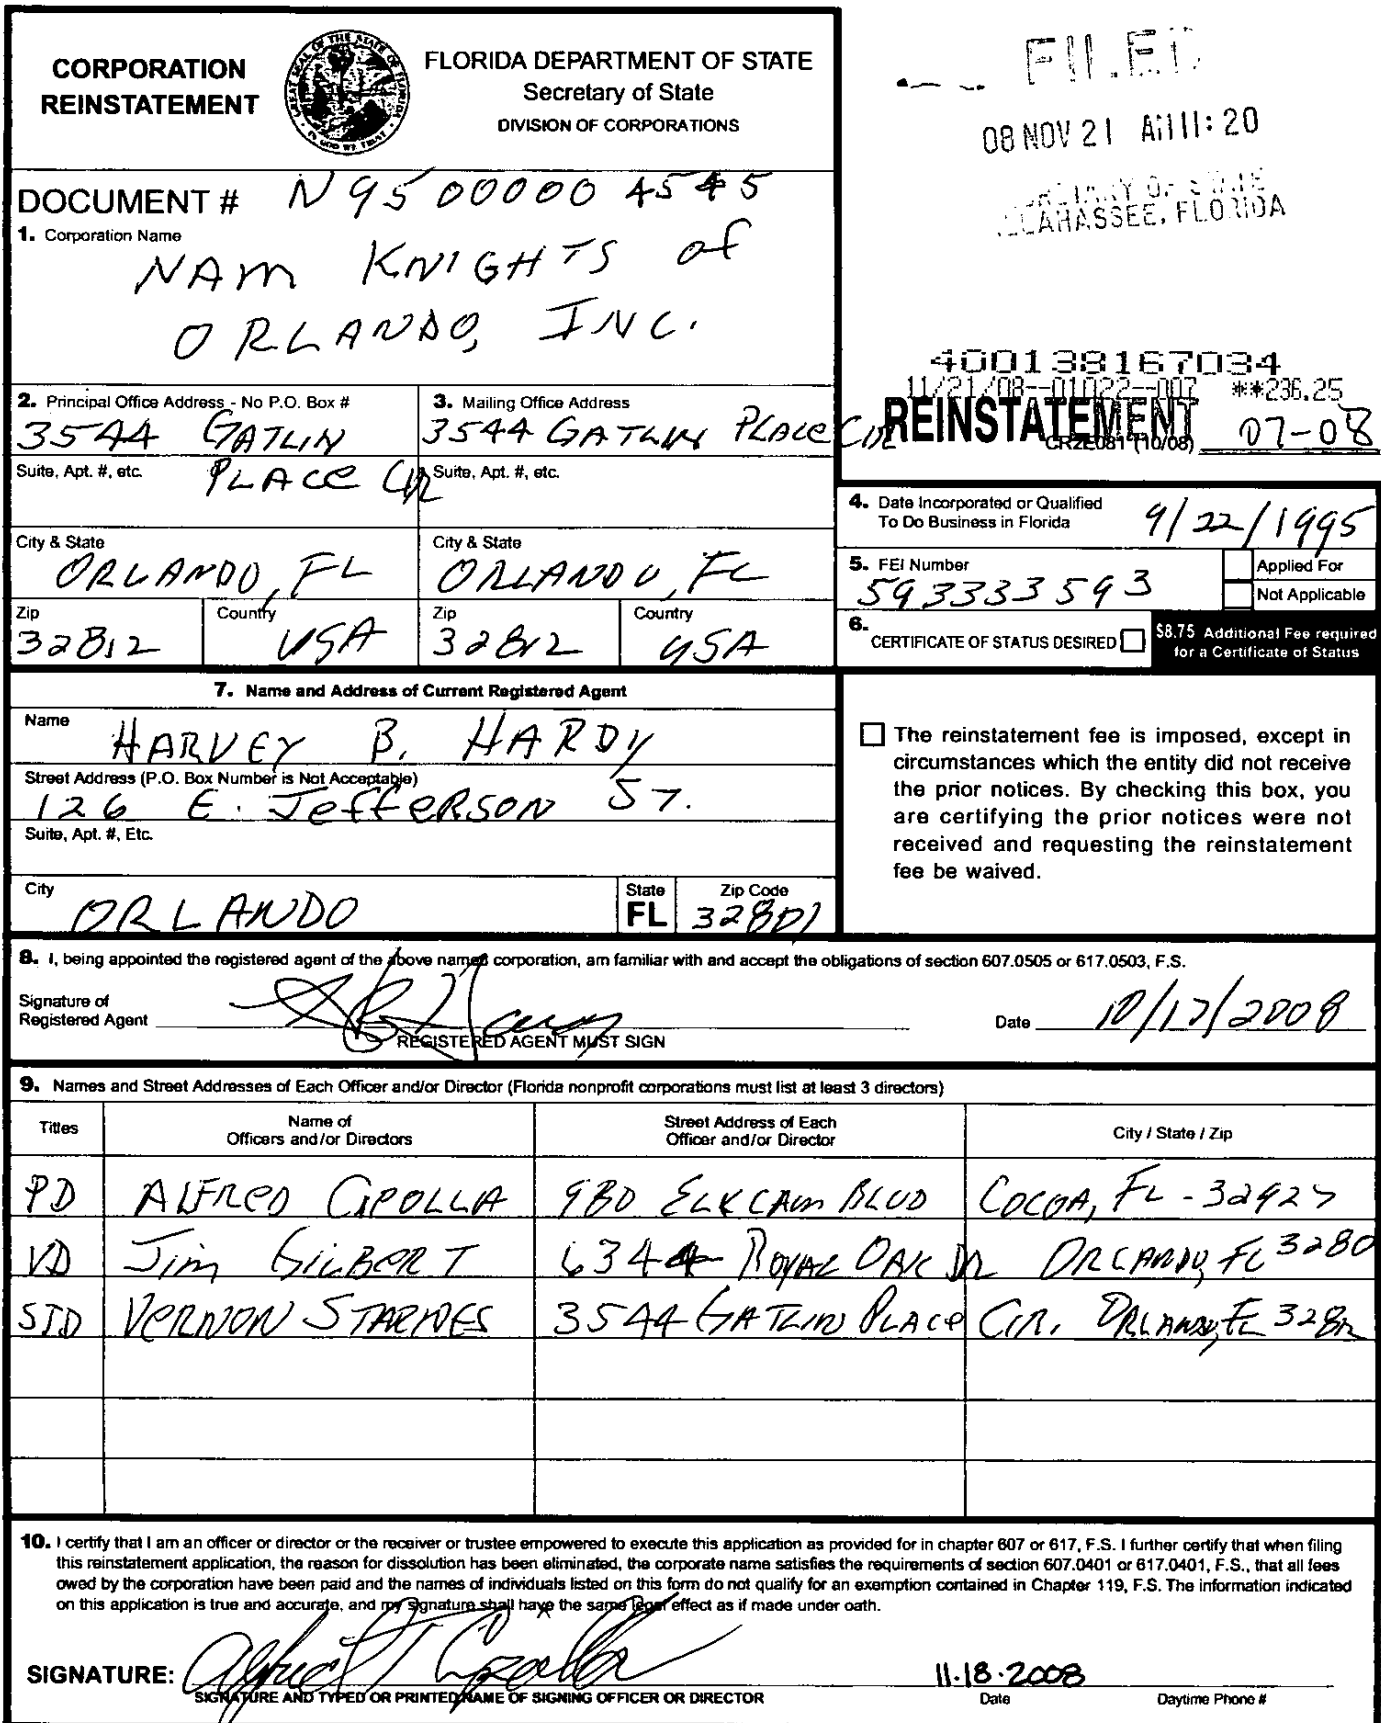 CORPORATION
REINSTATEMENT
GREAT SEAL OF THE STATE OF FLORIDA
IN GOD WE TRUST
FLORIDA DEPARTMENT OF STATE
Secretary of State
DIVISION OF CORPORATIONS
FILED
08 NOV 21 AM 11:20
OF STATE
TALLAHASSEE, FLORIDA
DOCUMENT # N95000004545
1. Corporation Name
NAM KNIGHTS of
ORLANDO, INC.
400138167034
11/21/08--01022--007 **236.25
REINSTATEMENT 07-08
CR2E081 (10/08)
2. Principal Office Address - No P.O. Box #
3544 GATLIN
3. Mailing Office Address
3544 GATLIN PLACE CIR
Suite, Apt. #, etc.
PLACE CIR
Suite, Apt. #, etc.
City & State
ORLANDO, FL
City & State
ORLANDO, FL
Zip
32812
Country
USA
Zip
32812
Country
USA
4. Date Incorporated or Qualified
To Do Business in Florida
9/22/1995
5. FEI Number
593333593
Applied For
Not Applicable
6. CERTIFICATE OF STATUS DESIRED
$8.75 Additional Fee required
for a Certificate of Status
7. Name and Address of Current Registered Agent
Name
HARVEY B. HARDY
Street Address (P.O. Box Number is Not Acceptable)
126 E. JeffERSON ST.
Suite, Apt. #, Etc.
City
ORLANDO
State
FL
Zip Code
32801
The reinstatement fee is imposed, except in
circumstances which the entity did not receive
the prior notices. By checking this box, you
are certifying the prior notices were not
received and requesting the reinstatement
fee be waived.
8. I, being appointed the registered agent of the above named corporation, am familiar with and accept the obligations of section 607.0505 or 617.0503, F.S.
Signature of
Registered Agent
Date 10/17/2008
REGISTERED AGENT MUST SIGN
9. Names and Street Addresses of Each Officer and/or Director (Florida nonprofit corporations must list at least 3 directors)
Titles
Name of
Officers and/or Directors
Street Address of Each
Officer and/or Director
City / State / Zip
PD ALFRED CIPOLLA 980 ELKCAM BLVD COCOA, FL - 32927
VD Jim GILBERT 6344 ROYAL OAK DR ORLANDO, FL 3280
STD VERNON STARNES 3544 GATLIN PLACE CIR. ORLANDO, FL 32812
10. I certify that I am an officer or director or the receiver or trustee empowered to execute this application as provided for in chapter 607 or 617, F.S. I further certify that when filing
this reinstatement application, the reason for dissolution has been eliminated, the corporate name satisfies the requirements of section 607.0401 or 617.0401, F.S., that all fees
owed by the corporation have been paid and the names of individuals listed on this form do not qualify for an exemption contained in Chapter 119, F.S. The information indicated
on this application is true and accurate, and my signature shall have the same legal effect as if made under oath.
SIGNATURE: Alfred T Cipolla
11-18-2008
SIGNATURE AND TYPED OR PRINTED NAME OF SIGNING OFFICER OR DIRECTOR
Date
Daytime Phone #